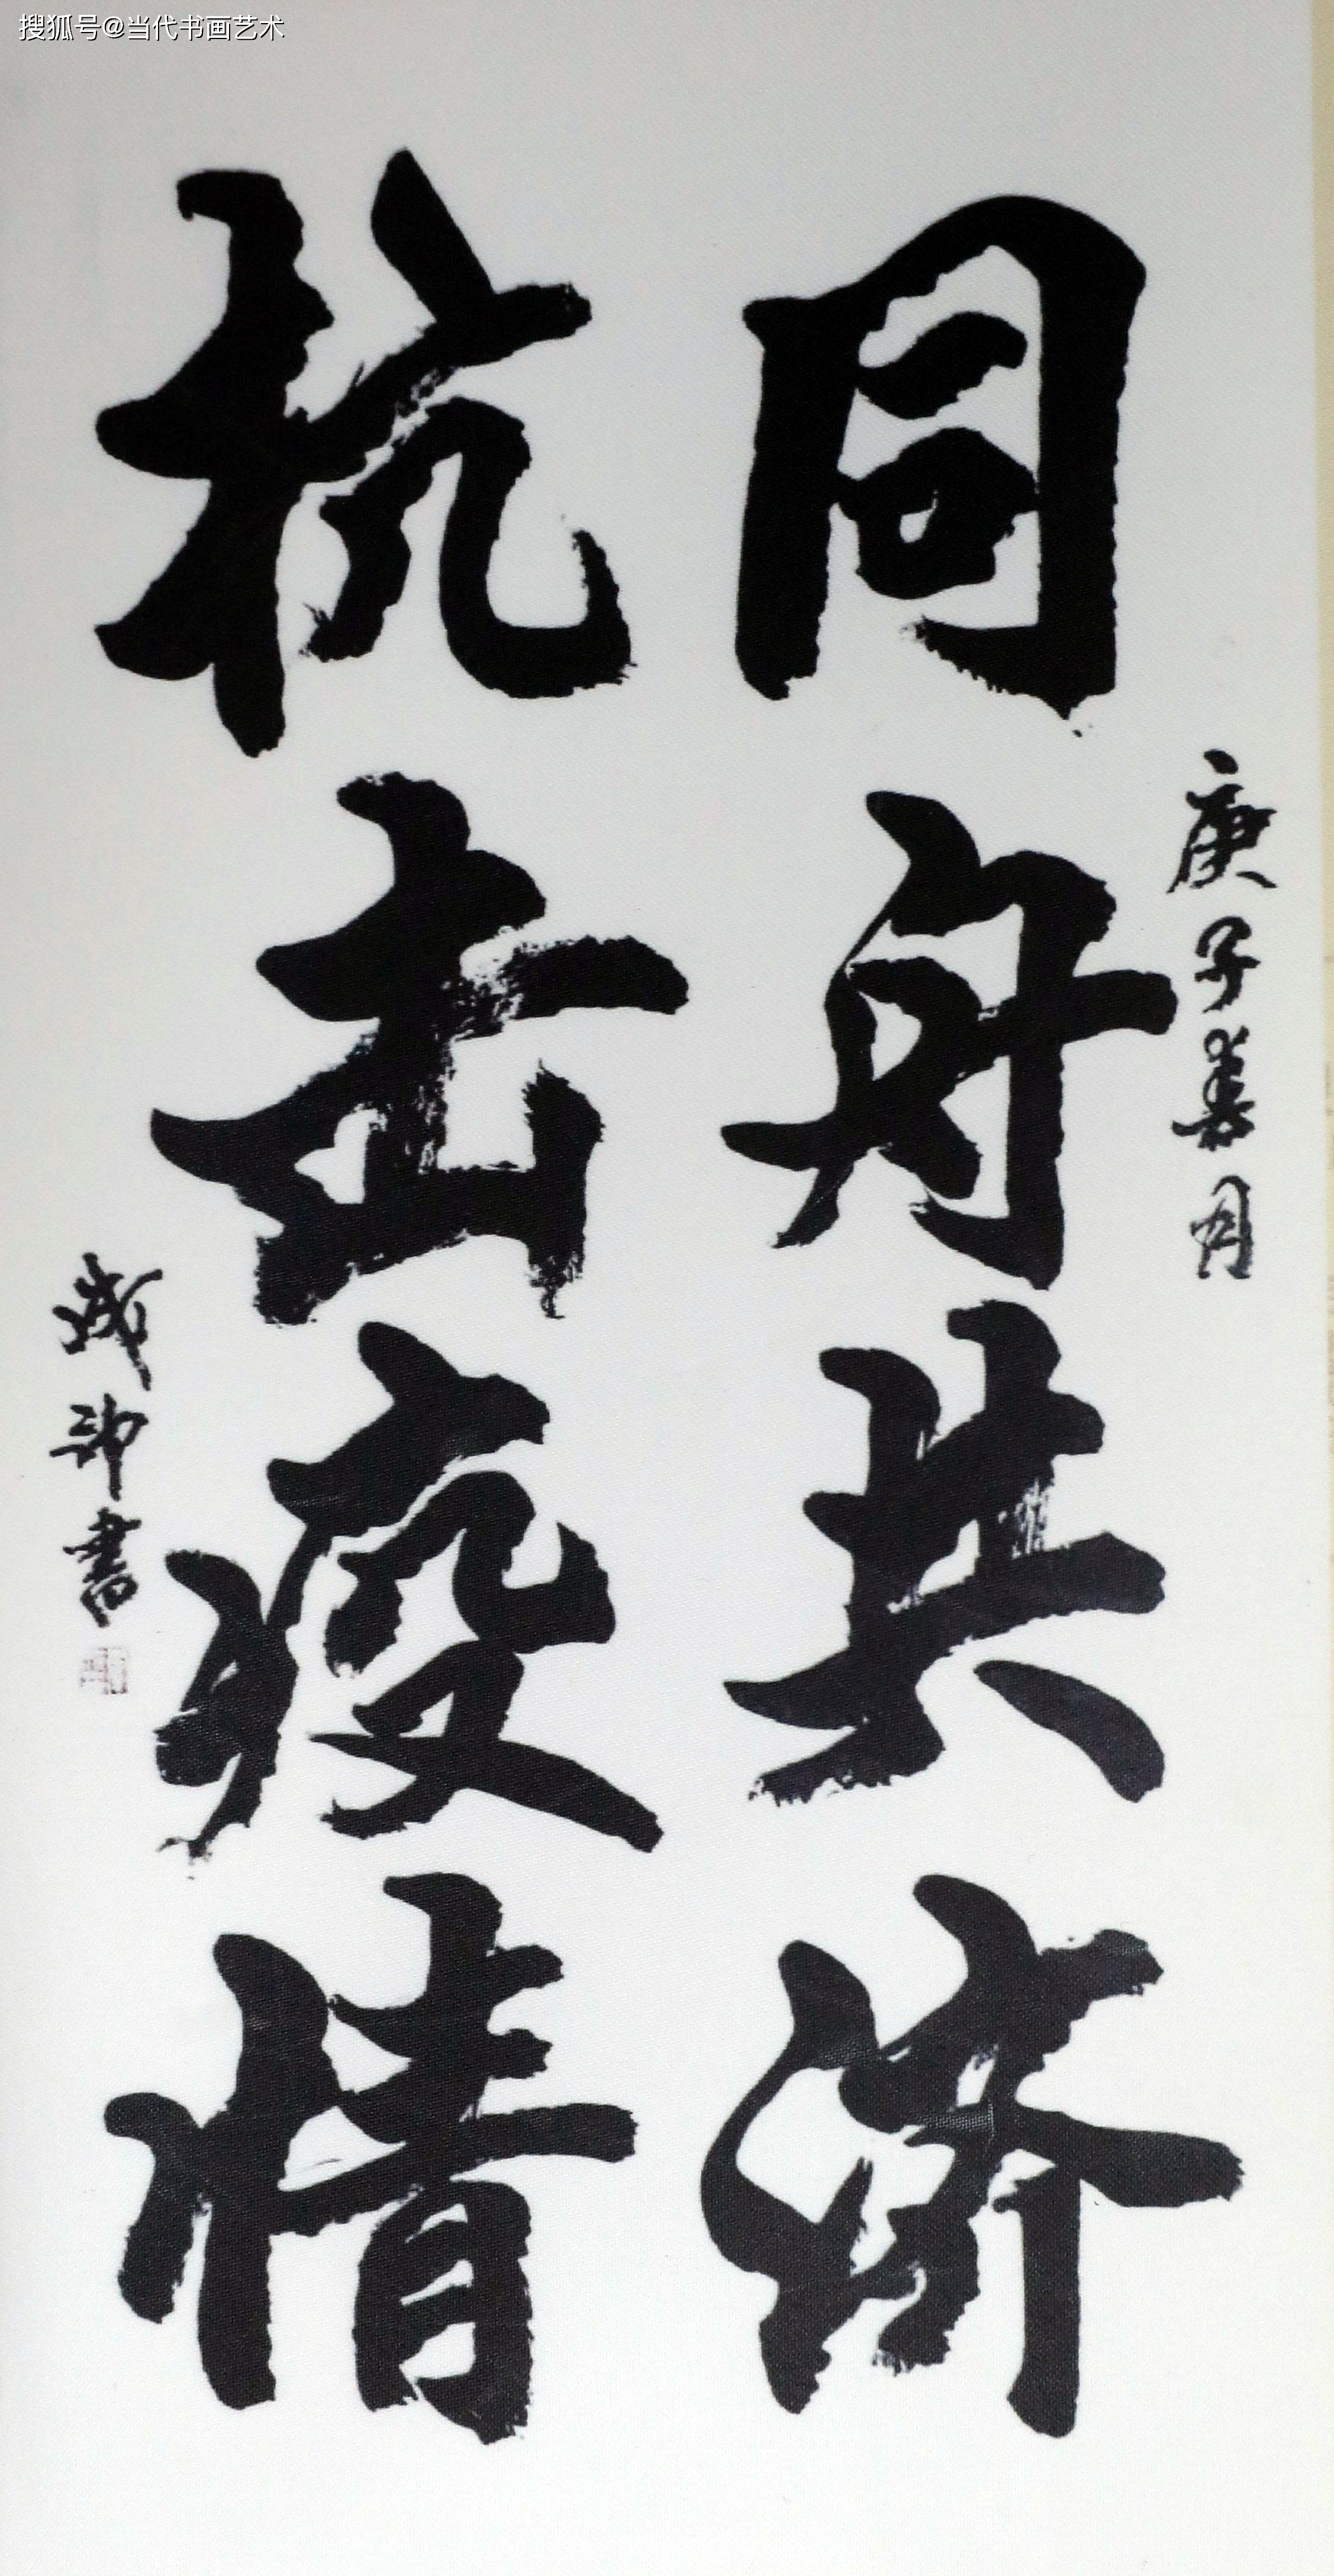 搜狐号@当代书画艺术
庚子春月
同舟共济
抗击疫情
书